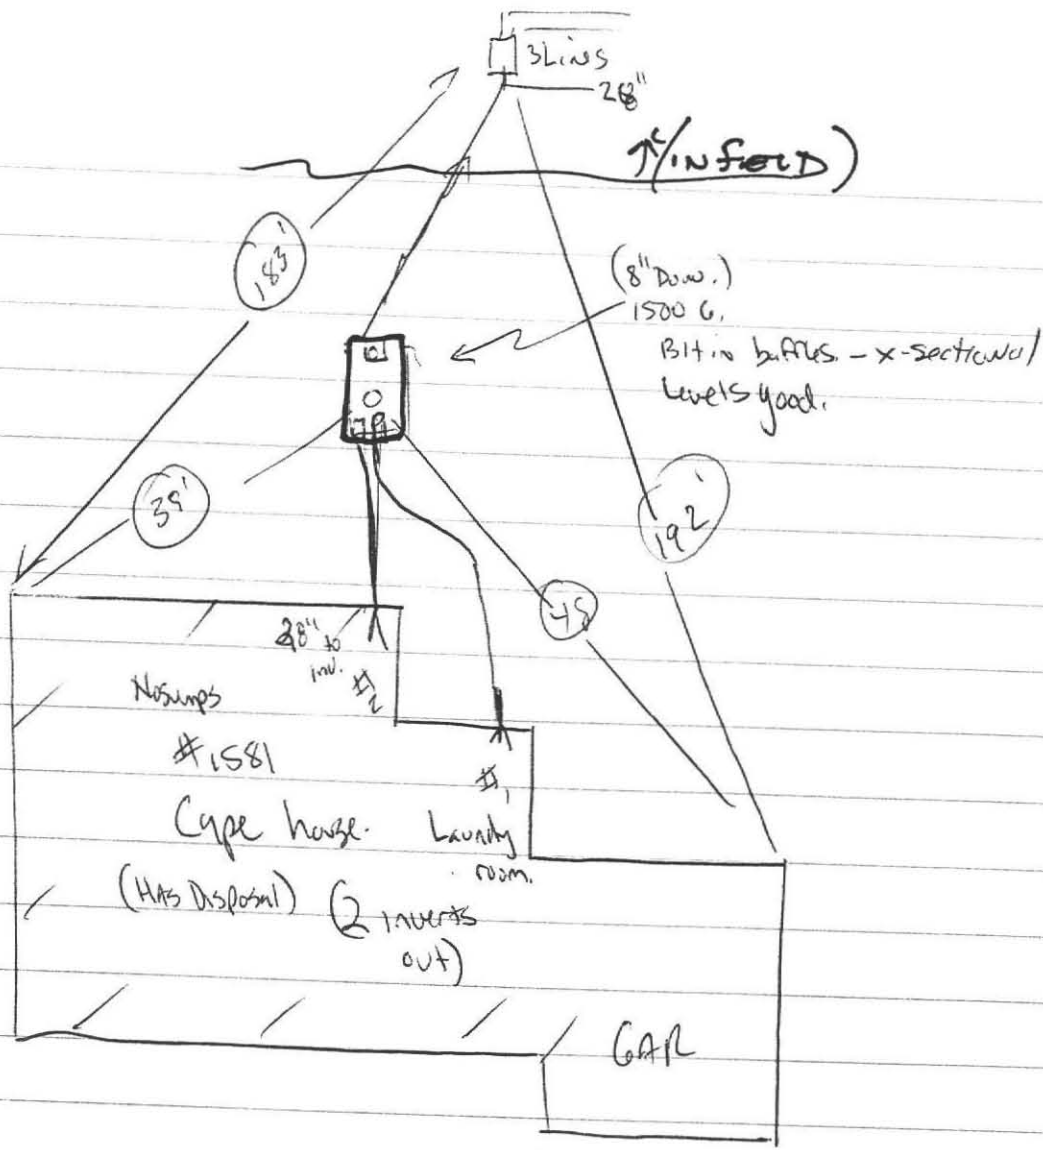 3 Lines
28"
↑ (IN FIELD)
183'
(8" Down.)
1500 G.
Blt in baffles. - x-sectional
Levels good.
39'
192'
48
28" to
inv.
#2
No sumps
#1581
Cape house.
#1
Laundry
room.
(HAS Disposal)
(2 inverts
out)
GAR